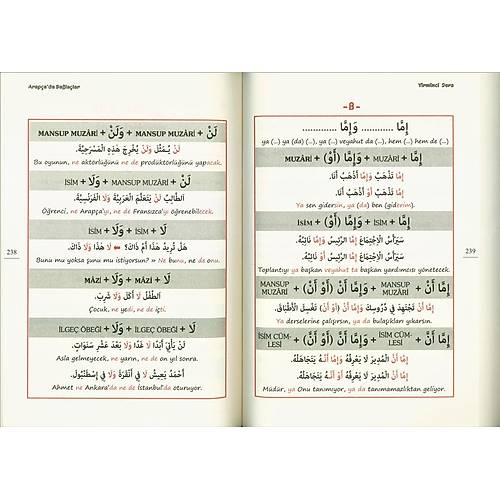 Arapça'da Bağlaçlar
لَنْ + MANSUP MUZÂRİ + وَلَنْ + MANSUP MUZÂRİ
لَنْ يُمَثِّلَ وَلَنْ يُخْرِجَ هَذِهِ الْمَسْرَحِيَّةَ.
Bu oyunun, ne aktörlüğünü ne de prodüktörlüğünü yapacak.
لَنْ + MANSUP MUZÂRİ + وَلَا + İSİM
اَلطَّالِبُ لَنْ يَتَعَلَّمَ الْعَرَبِيَّةَ وَلَا الْفَرَنْسِيَّةَ.
Öğrenci, ne Arapça'yı, ne de Fransızca'yı öğrenebilecek.
لَا + İSİM + وَلَا + İSİM
هَلْ تُرِيدُ هَذَا أَمْ ذَاكَ؟ ⇐ لَا هَذَا وَلَا ذَاكَ.
Bunu mu yoksa şunu mu istiyorsun? » Ne bunu, ne de onu.
لَا + MÂZİ + وَلَا + MÂZİ
اَلطِّفْلُ لَا أَكَلَ وَلَا شَرِبَ.
Çocuk, ne yedi, ne de içti.
لَا + İLGEÇ ÖBEĞİ + وَلَا + İLGEÇ ÖBEĞİ
لَنْ يَأْتِيَ أَبَدًا لَا غَدًا وَلَا بَعْدَ عَشْرِ سَنَوَاتٍ.
Asla gelmeyecek, ne yarın, ne de on yıl sonra.
أَحْمَدُ يَعِيشُ لَا فِي أَنْقَرَةَ وَلَا فِي إِسْطَنْبُولَ.
Ahmet ne Ankara'da ne de İstanbul'da oturuyor.
238
Yirminci Ders
- B -
إِمَّا ............ وَإِمَّا .............
ya (...) ya (da) (...), ya (...) veyahut da (...), hem (...) hem de (...)
إِمَّا + MUZÂRİ + وَإِمَّا (أَوْ) + MUZÂRİ
إِمَّا تَذْهَبُ وَإِمَّا أَذْهَبُ أَنَا.
إِمَّا تَذْهَبُ أَوْ أَذْهَبُ أَنَا.
Ya sen gidersin, ya (da) ben (giderim).
إِمَّا + İSİM + وَإِمَّا (أَوْ) + İSİM
سَيَرْأَسُ الْاِجْتِمَاعَ إِمَّا الرَّئِيسُ وَإِمَّا نَائِبُهُ.
سَيَرْأَسُ الْاِجْتِمَاعَ إِمَّا الرَّئِيسُ أَوْ نَائِبُهُ.
Toplantıyı ya başkan veyahut ta başkan yardımcısı yönetecek.
إِمَّا أَنْ + MANSUP MUZÂRİ + وَإِمَّا أَنْ (أَوْ أَنْ) + MANSUP MUZÂRİ
إِمَّا أَنْ تَجْتَهِدَ فِي دُرُوسِكَ وَإِمَّا أَنْ (أَوْ أَنْ) تَغْسِلَ الْأَطْبَاقَ.
Ya derslerine çalışırsın, ya da bulaşıkları yıkarsın.
إِمَّا أَنَّ + İSİM CÜMLESİ + وَإِمَّا أَنَّ (أَوْ أَنَّ) + İSİM CÜMLESİ
إِمَّا أَنَّ الْمُدِيرَ لَا يَعْرِفُهُ وَإِمَّا أَنَّـهُ يَتَجَاهَلُهُ.
إِمَّا أَنَّ الْمُدِيرَ لَا يَعْرِفُهُ أَوْ أَنَّـهُ يَتَجَاهَلُهُ.
Müdür, ya Onu tanımıyor, ya da tanımamazlıktan geliyor.
239